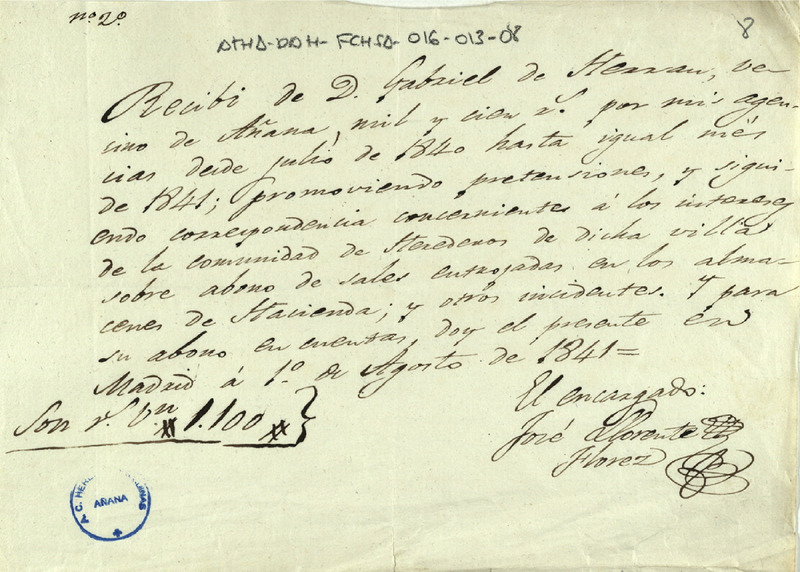 nº 2º
ATHA-DAH-FCHSA-016-013-08
8
Recibi de D. Gabriel de Herran, ve-
cino de Añana, mil y cien rs. por mis agen-
cias desde julio de 1840 hasta igual més
de 1841; promoviendo pretensiones, y sigui-
endo correspondencia concernientes á los intereses
de la comunidad de Herederos de dicha villa
sobre abono de sales entrojadas en los alma-
cenes de Hacienda; y otros incidentes. Y para
su abono en cuentas, doy el presente en
Madrid á 1º. de Agosto de 1841=
El encargado:
Son rs. vn # 1.100 #
José Llorente
Florez
A.C. HERE
AÑANA